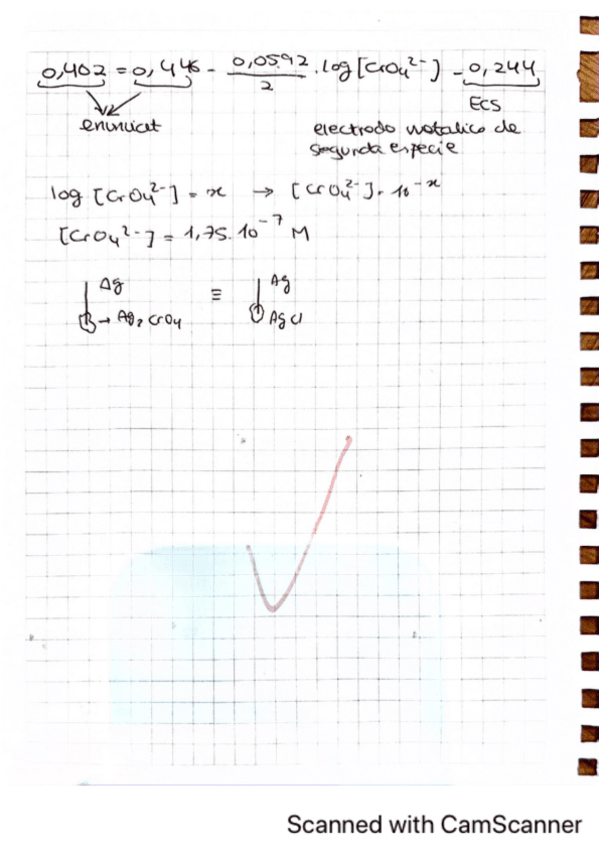 0,402 = 0,446 - 0,0592/2 · log [CrO4²⁻] - 0,244
ECS
enunciat
electrodo metalico de
segunda especie
log [CrO4²⁻] = x → [CrO4²⁻] = 10⁻ˣ
[CrO4²⁻] = 1,75·10⁻⁷ M
Ag ≡ Ag
→ Ag2CrO4 AgCl
Scanned with CamScanner